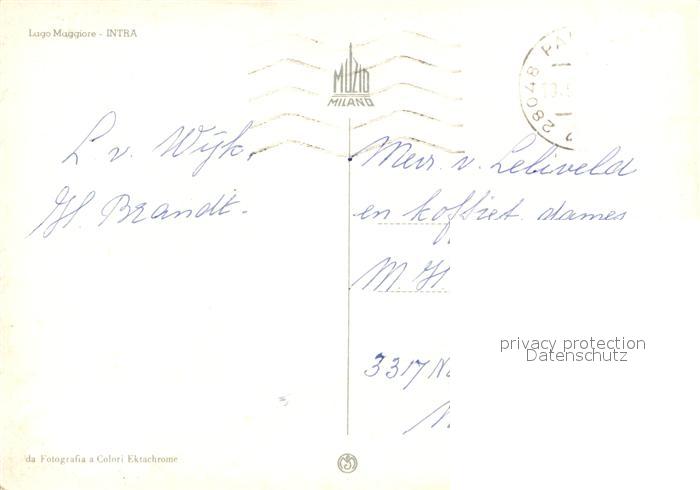 Lago Maggiore - INTRA
MUZIO
MILANO
28048 PA
L. v. Wijk.
H. Brandt.
Mevr. v. Leliveld
en koffiet. dames
M. H.
privacy protection
Datenschutz
3317 N
N.
da Fotografia a Colori Ektachrome